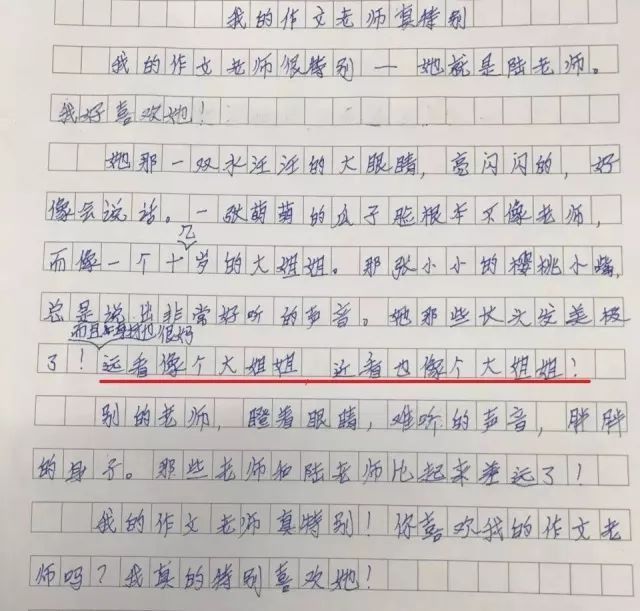 我的作文老师真特别
我的作文老师很特别一她就是陆老师。
我好喜欢她！
她那一双水汪汪的大眼睛，亮闪闪的，好
像会说话。一张萌萌的瓜子脸根本不像老师，
几
而像一个十岁的大姐姐。那张小小的樱桃小嘴，
总是说出非常好听的声音。她那些长头发美极
而且身材也很好
了！远看像个大姐姐，近看也像个大姐姐！
别的老师，瞪着眼睛，难听的声音，胖胖
的身子。那些老师和陆老师比起来差远了！
我的作文老师真特别！你喜欢我的作文老
师吗？我真的特别喜欢她！